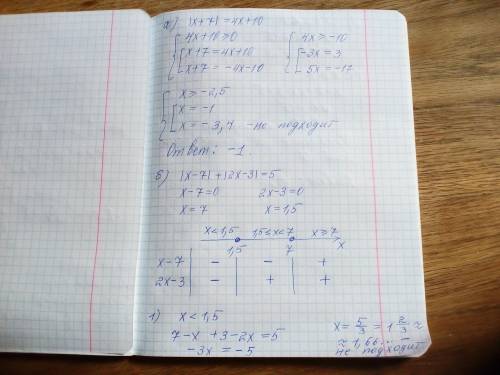 а) |x+7| = 4x+10
{ 4x+10 ≥ 0 { 4x ≥ -10
[ x+7 = 4x+10 [ -3x = 3
[ x+7 = -4x-10 [ 5x = -17
{ x ≥ -2,5
[ x = -1
[ x = -3,4 - не подходит
Ответ: -1.
б) |x-7| + |2x-3| = 5
x-7=0 2x-3=0
x=7 x=1,5
x<1,5 1,5≤x<7 x≥7
1,5 7 x
x-7 - - +
2x-3 - + +
1) x < 1,5
7-x +3-2x = 5 x = 5/3 = 1 2/3 ≈
-3x = -5 ≈ 1,66... -
не подходит